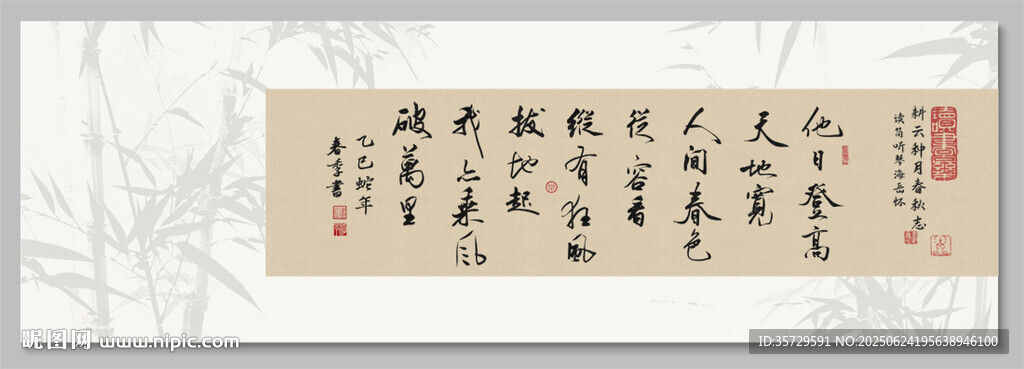 耕云种月春秋志
读简听琴海岳怀
他日登高
天地寬
人間春色
從容看
縱有狂風
拔地起
我亦乘风
破萬里
乙巳蛇年
春季書
昵图网 www.nipic.com
ID:35729591 NO:20250624195638946100